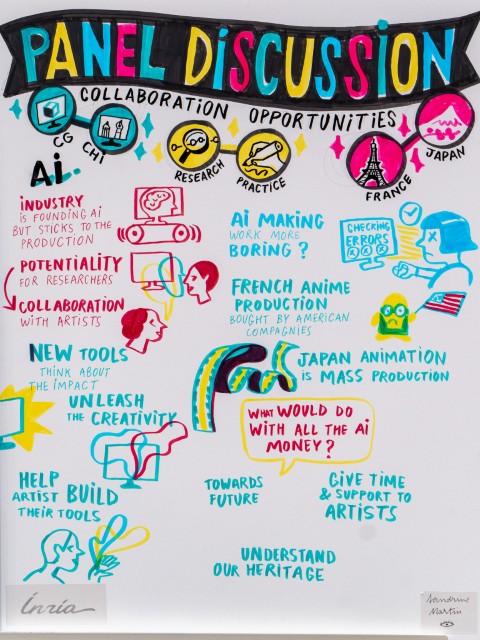 PANEL DISCUSSION
COLLABORATION OPPORTUNITIES
CG CHI
RESEARCH PRACTICE
FRANCE JAPAN
A.i.
iNDUSTRY
iS FOUNDiNG Ai
BUT STiCKS TO THE
PRODUCTiON
POTENTiALiTY
FOR RESEARCHERS
COLLABORATiON
WiTH ARTiSTS
NEW TOOLS
THiNK ABOUT
THE iMPACT
UNLEASH
THE CREATiViTY
HELP
ARTiST BUiLD
THEiR TOOLS
Ai MAKiNG
WORK MORE
BORiNG ?
CHECKiNG
ERRORS
FRENCH ANiME
PRODUCTiON
BOUGHT BY AMERiCAN
COMPAGNiES
JAPAN ANiMATiON
iS MASS PRODUCTiON
WHAT WOULD DO
WiTH ALL THE Ai
MONEY?
TOWARDS
FUTURE
GiVE TiME
& SUPPORT TO
ARTiSTS
UNDERSTAND
OUR HERiTAGE
inria
Sandrine
Martin